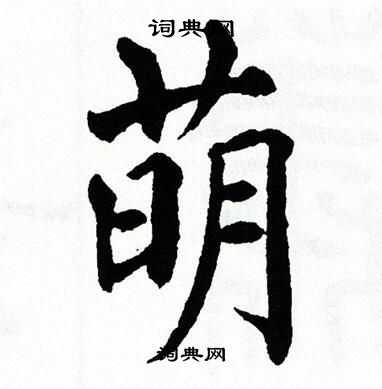 词典网
萌
词典网